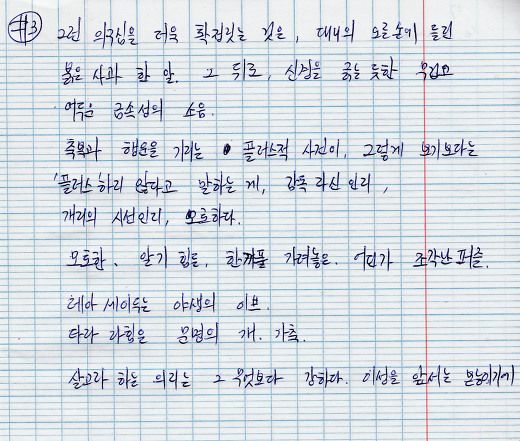 #3 그런 의구심을 더욱 확정짓는 것은, 대니의 오른손에 들린
붉은 사과 한 알. 그 뒤로, 신경을 긁는 듯한 무겁고
어두운 금속성의 소음.
축복과 행운을 기리는 플러스적 사진이, 그렇게 보기보다는
'플러스'하리 않다고 말하는 게, 감독 라신인리,
개리의 시선인리, 모호하다.
모호한, 알기 힘든, 한꺼풀 가려놓은. 어딘가 조각난 퍼즐.
레아 세이두는 야생의 이브.
타라 라힘은 문명의 개. 가축.
살고라 하는 의리는 그 무엇보다 강하다. 이성을 앞서는 본능이기에